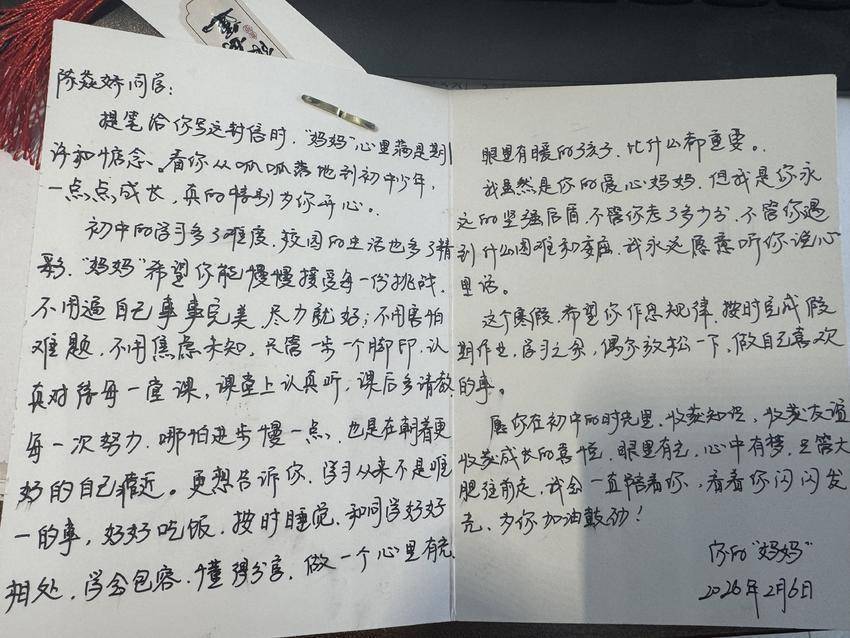 陈焱娇同学：
提笔给你写这封信时，“妈妈”心里满是期
许和惦念。看你从呱呱落地到初中少年，
一点点成长，真的特别为你开心。
初中的学习多了难度，校园的生活也多了精
彩，“妈妈”希望你能慢慢接受每一份挑战，
不用逼自己事事完美，尽力就好；不用害怕
难题，不用焦虑未知，只需一步一个脚印，认
真对待每一堂课，课堂上认真听，课后多请教
每一次努力，哪怕进步慢一点，也是在朝着更
好的自己靠近。更想告诉你，学习从来不是唯
一的事，好好吃饭，按时睡觉，和同学好好
相处，学会包容，懂得分享，做一个心里有光
眼里有暖的孩子，比什么都重要。
我虽然是你的爱心妈妈，但我是你永
远的坚强后盾，不管你考了多少分，不管你遇
到什么困难和委屈，我永远愿意听你说心
里话。
这个寒假，希望你作息规律，按时完成假
期作业，学习之余，偶尔放松一下，做自己喜欢
的事。
愿你在初中的时光里，收获知识，收获友谊
收获成长的喜悦，眼里有光，心中有梦，只管大
胆往前走，我会一直陪着你，看着你闪闪发
光，为你加油鼓劲！
你的“妈妈”
2026年2月6日